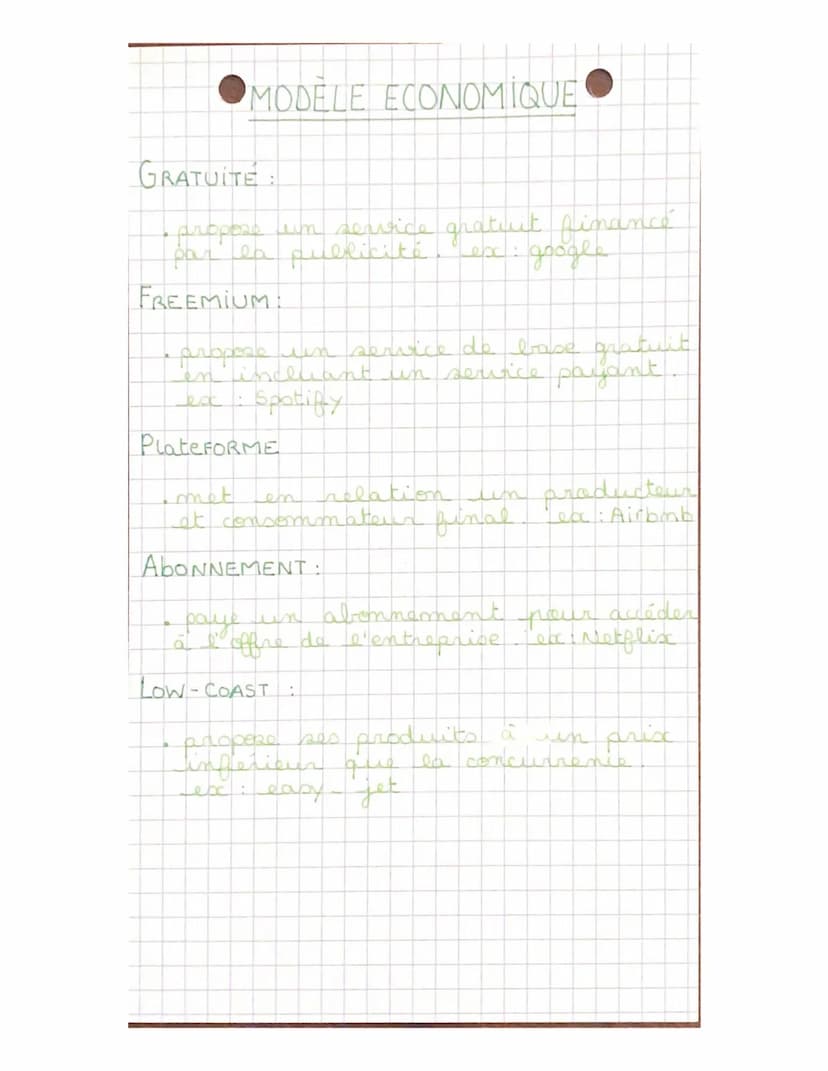 MODÈLE ECONOMIQUE
GRATUITÉ :
• propose un service gratuit financé
par la publicité. ex : google
FREEMIUM :
• propose un service de base gratuit
en incluant un service payant.
ex : Spotify
PlateFORME
• met en relation un producteur
et consommateur final. ex : Airbnb
AbONNEMENT :
• paye un abonnement pour accéder
à l'offre de l'entreprise. ex : Netflix
LOW - COAST :
• propose ses produits à un prix
inférieur que la concurrence.
ex : easy - jet